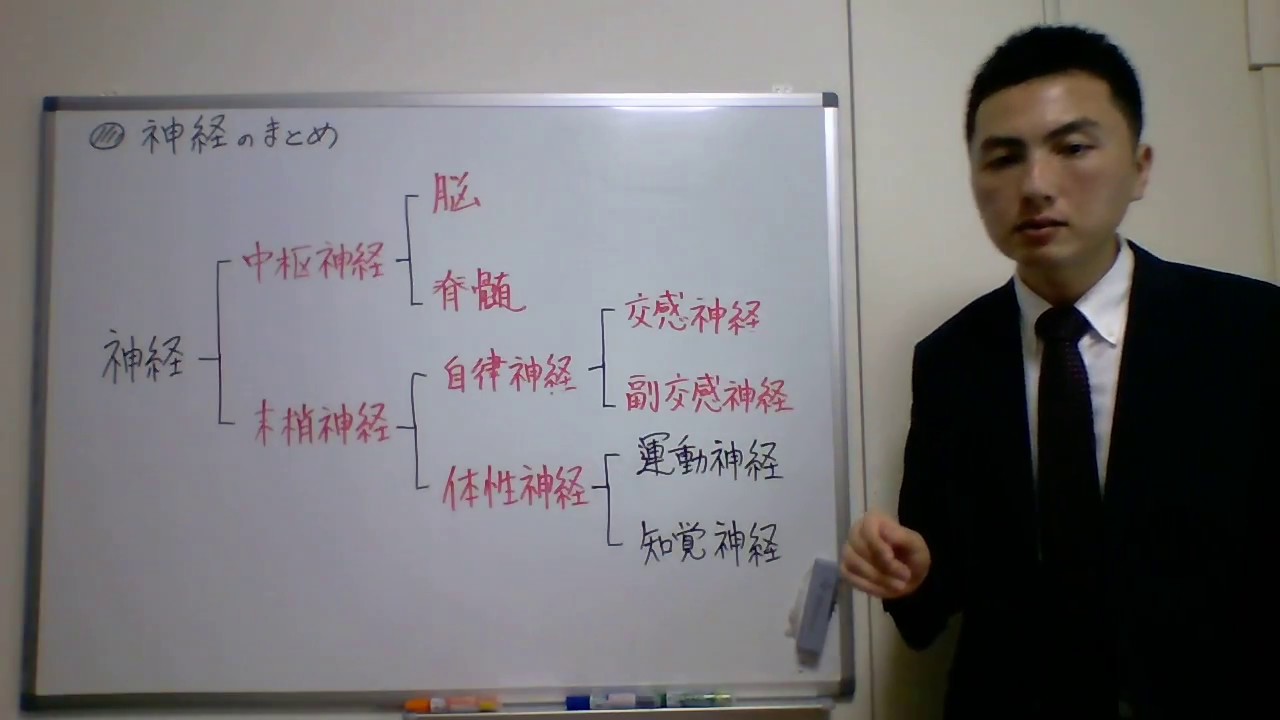 神経のまとめ
脳
中枢神経
脊髄
交感神経
神経
自律神経
副交感神経
末梢神経
運動神経
体性神経
知覚神経